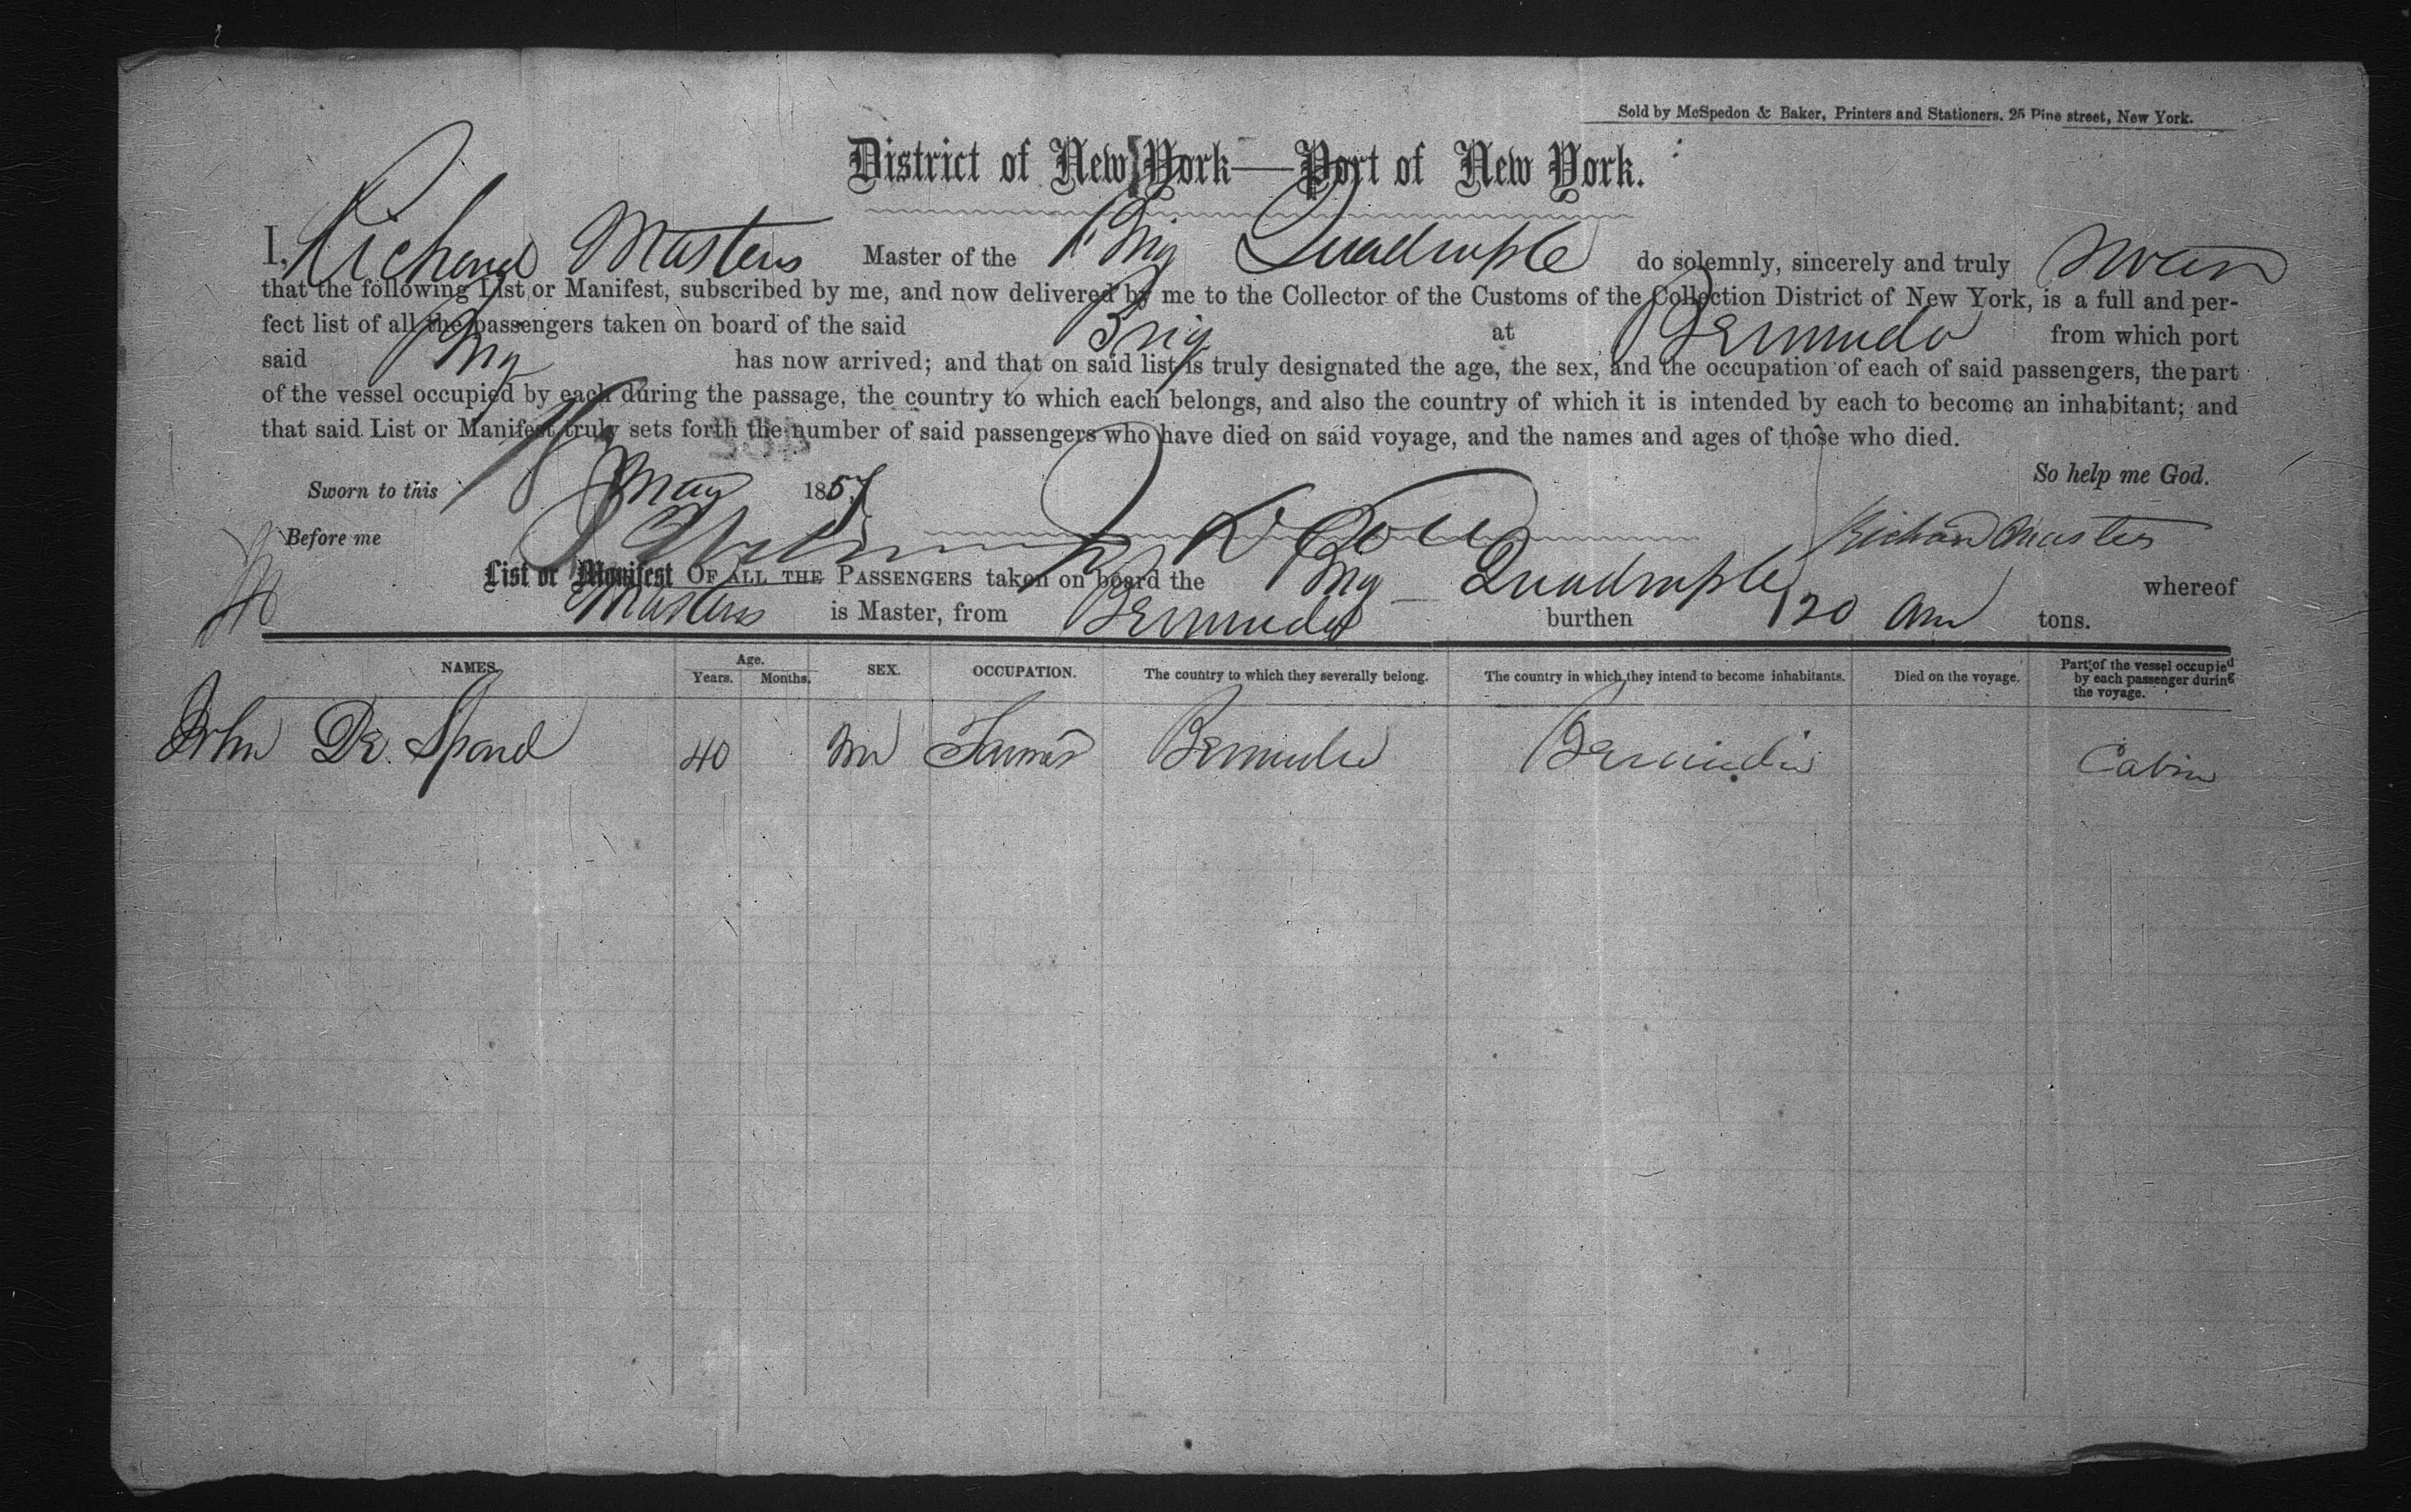 Sold by McSpedon & Baker, Printers and Stationers. 25 Pine street, New York.
District of New York—Port of New York.
I, Richard Masters Master of the Brig Quadruple do solemnly, sincerely and truly swear
that the following List or Manifest, subscribed by me, and now delivered by me to the Collector of the Customs of the Collection District of New York, is a full and per-
fect list of all the passengers taken on board of the said Brig at Bermuda from which port
said Brig has now arrived; and that on said list is truly designated the age, the sex, and the occupation of each of said passengers, the part
of the vessel occupied by each during the passage, the country to which each belongs, and also the country of which it is intended by each to become an inhabitant; and
that said List or Manifest truly sets forth the number of said passengers who have died on said voyage, and the names and ages of those who died.
So help me God.
Sworn to this 18 May 1857
Before me Richard Masters
List or Manifest OF ALL THE PASSENGERS taken on board the Brig Quadruple whereof
Masters is Master, from Bermuda burthen 120 tons.
NAMES. Age. Years. Months. SEX. OCCUPATION. The country to which they severally belong. The country in which they intend to become inhabitants. Died on the voyage. Part of the vessel occupied by each passenger during the voyage.
John De Spard 40 M Farmer Bermuda Bermuda Cabin